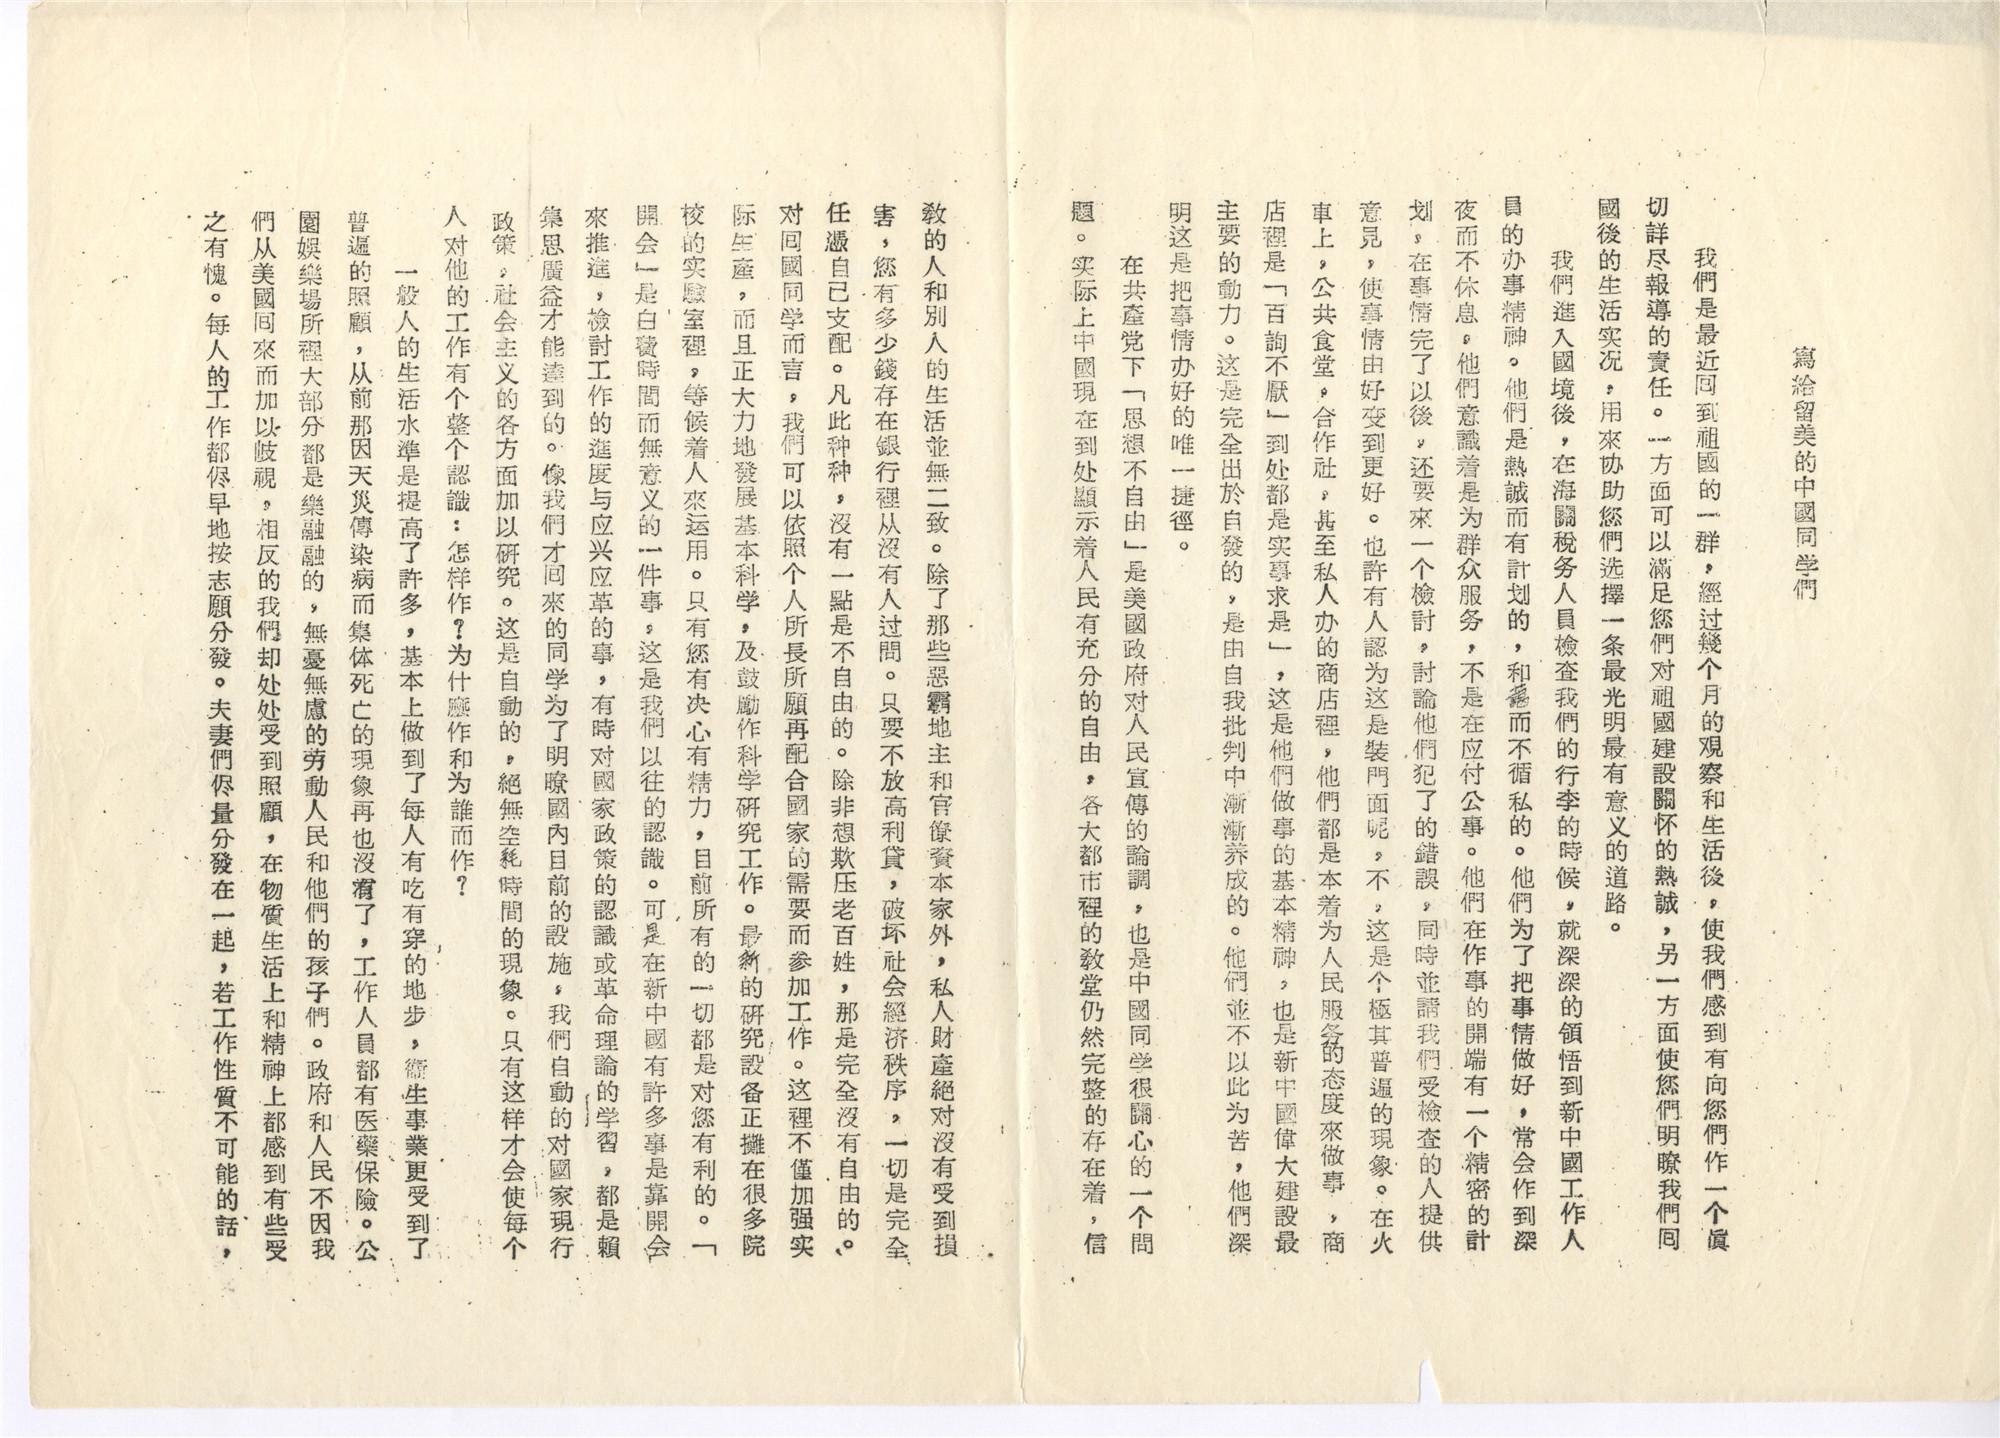 寫給留美的中國同学們
我們是最近回到祖國的一群，經过幾个月的观察和生活後，使我們感到有向您們作一个眞
切詳尽報導的責任。一方面可以滿足您們对祖國建設關怀的熱誠，另一方面使您們明瞭我們回
國後的生活实况，用來协助您們选擇一条最光明最有意义的道路。
我們進入國境後，在海關稅务人員檢查我們的行李的時候，就深深的領悟到新中國工作人
員的办事精神。他們是熱誠而有計划的，和藹而不循私的。他們为了把事情做好，常会作到深
夜而不休息，他們意識着是为群众服务，不是在应付公事。他們在作事的開端有一个精密的計
划，在事情完了以後，还要來一个檢討，討論他們犯了的錯誤，同時並請我們受檢查的人提供
意見，使事情由好变到更好。也許有人認为这是裝門面呢，不，这是个極其普遍的現象。在火
車上，公共食堂，合作社，甚至私人办的商店裡，他們都是本着为人民服务的态度來做事，商
店裡是「百詢不厭」到处都是实事求是」，这是他們做事的基本精神，也是新中國偉大建設最
主要的動力。这是完全出於自發的，是由自我批判中漸漸养成的。他們並不以此为苦，他們深
明这是把事情办好的唯一捷徑。
在共產党下「思想不自由」是美國政府对人民宣傳的論調，也是中國同学很關心的一个問
題。实际上中國現在到处顯示着人民有充分的自由，各大都市裡的敎堂仍然完整的存在着，信
敎的人和別人的生活並無二致。除了那些惡霸地主和官僚資本家外，私人財產絕对沒有受到損
害，您有多少錢存在銀行裡从沒有人过問。只要不放高利貸，破坏社会經济秩序，一切是完全
任憑自己支配。凡此种种，沒有一點是不自由的。除非想欺压老百姓，那是完全沒有自由的。
对回國同学而言，我們可以依照个人所長所願再配合國家的需要而参加工作。这裡不僅加强实
际生產，而且正大力地發展基本科学，及鼓勵作科学硏究工作。最新的硏究設备正攤在很多院
校的实驗室裡，等候着人來运用。只有您有决心有精力，目前所有的一切都是对您有利的。「
開会」是白費時間而無意义的一件事，这是我們以往的認識。可是在新中國有許多事是靠開会
來推進，檢討工作的進度与应兴应革的事，有時对國家政策的認識或革命理論的学習，都是賴
集思廣益才能達到的。像我們才回來的同学为了明瞭國內目前的設施，我們自動的对國家現行
政策，社会主义的各方面加以硏究。这是自動的，絕無空耗時間的現象。只有这样才会使每个
人对他的工作有个整个認識：怎样作？为什麼作和为誰而作？
一般人的生活水準是提高了許多，基本上做到了每人有吃有穿的地步，衛生事業更受到了
普遍的照顧，从前那因天災傳染病而集体死亡的現象再也沒有了，工作人員都有医藥保險。公
園娛樂場所裡大部分都是樂融融的，無憂無慮的劳動人民和他們的孩子們。政府和人民不因我
們从美國回來而加以歧視，相反的我們却处处受到照顧，在物質生活上和精神上都感到有些受
之有愧。每人的工作都侭早地按志願分發。夫妻們侭量分發在一起，若工作性質不可能的話，